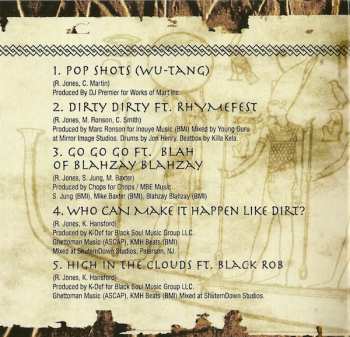 1. POP SHOTS (WU-TANG)
(R. Jones, C. Martin)
Produced By DJ Premier for Works of Mart Inc.
2. DIRTY DIRTY FT. RHYMEFEST
(R. Jones, M. Ronson, C. Smith)
Produced by Marc Ronson for Inouye Music (BMI) Mixed by Young Guru
at Mirror Image Studios. Drums by Jon Henry. Beatbox by Killa Kela.
3. GO GO GO FT. BLAH
OF BLAHZAY BLAHZAY
(R. Jones, S. Jung, M. Baxter)
Produced by Chops for Chops / MBE Music
S. Jung (BMI), Mike Baxter (BMI), Blahzay Blahzay (BMI)
4. WHO CAN MAKE IT HAPPEN LIKE DIRT?
(R. Jones, K. Hansford)
Produced by K-Def for Black Soul Music Group LLC.
Ghettoman Music (ASCAP), KMH Beats (BMI)
Mixed at ShutemDown Studios, Paterson, NJ.
5. HIGH IN THE CLOUDS FT. BLACK ROB
(R. Jones, K. Hansford)
Produced by K-Def for Black Soul Music Group LLC.
Ghettoman Music (ASCAP), KMH Beats (BMI) Mixed at ShutemDown Studios.